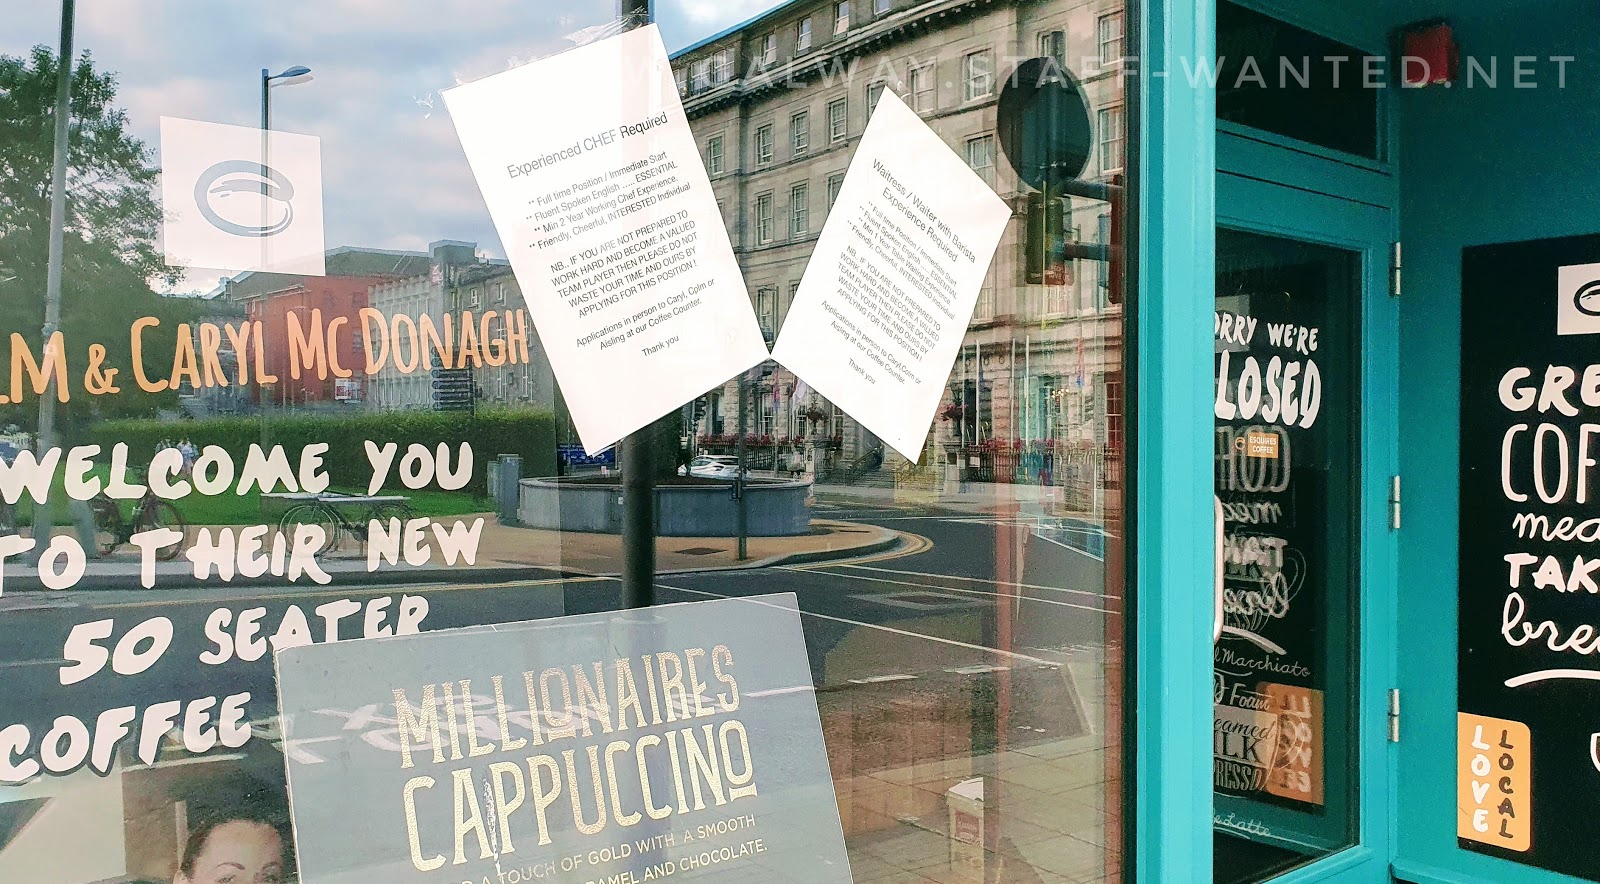 ALWAY.STAFF-WANTED.NET
Experienced CHEF Required
** Full time Position / Immediate Start
** Fluent Spoken English ..... ESSENTIAL
** Min 2 Year Working Chef Experience.
** Friendly, Cheerful, INTERESTED Individual
NB.. IF YOU ARE NOT PREPARED TO
WORK HARD AND BECOME A VALUED
TEAM PLAYER THEN PLEASE DO NOT
WASTE YOUR TIME AND OURS BY
APPLYING FOR THIS POSITION !
Applications in person to Caryl, Colm or
Aisling at our Coffee Counter.
Thank you
Waitress / Waiter with Barista
Experience Required
** Full time Position / Immediate Start
** Fluent Spoken English ..... ESSENTIAL
** Min 1 Year Working Experience
** Friendly, Cheerful, INTERESTED Individual
NB.. IF YOU ARE NOT PREPARED TO
WORK HARD AND BECOME A VALUED
TEAM PLAYER THEN PLEASE DO NOT
WASTE YOUR TIME AND OURS BY
APPLYING FOR THIS POSITION !
Applications in person to Caryl, Colm or
Aisling at our Coffee Counter.
Thank you
LM & CARYL MC DONAGH
WELCOME YOU
TO THEIR NEW
50 SEATER
COFFEE
MILLIONAIRES
CAPPUCCINO
A TOUCH OF GOLD WITH A SMOOTH
AMEL AND CHOCOLATE.
ORRY WE'RE
LOSED
ESQUIRES
COFFEE
Macchiato
Foam
eamed
ILK
PRESSO
Latte
GRE
COF
mea
TAK
brea
LOVE
LOCAL